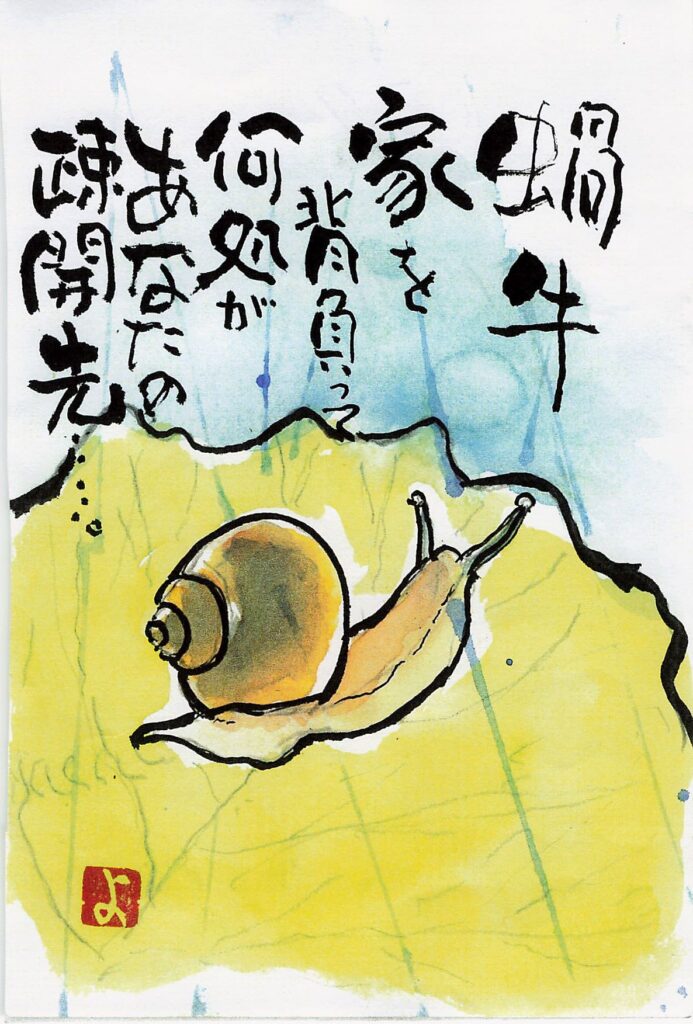 蝸牛
家を
背負って
何処が
あなたの
疎開先…
よ